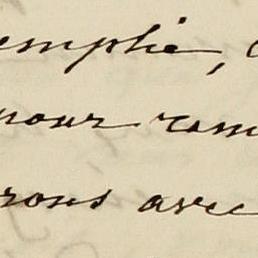 emplie,
pour ram
rons avec